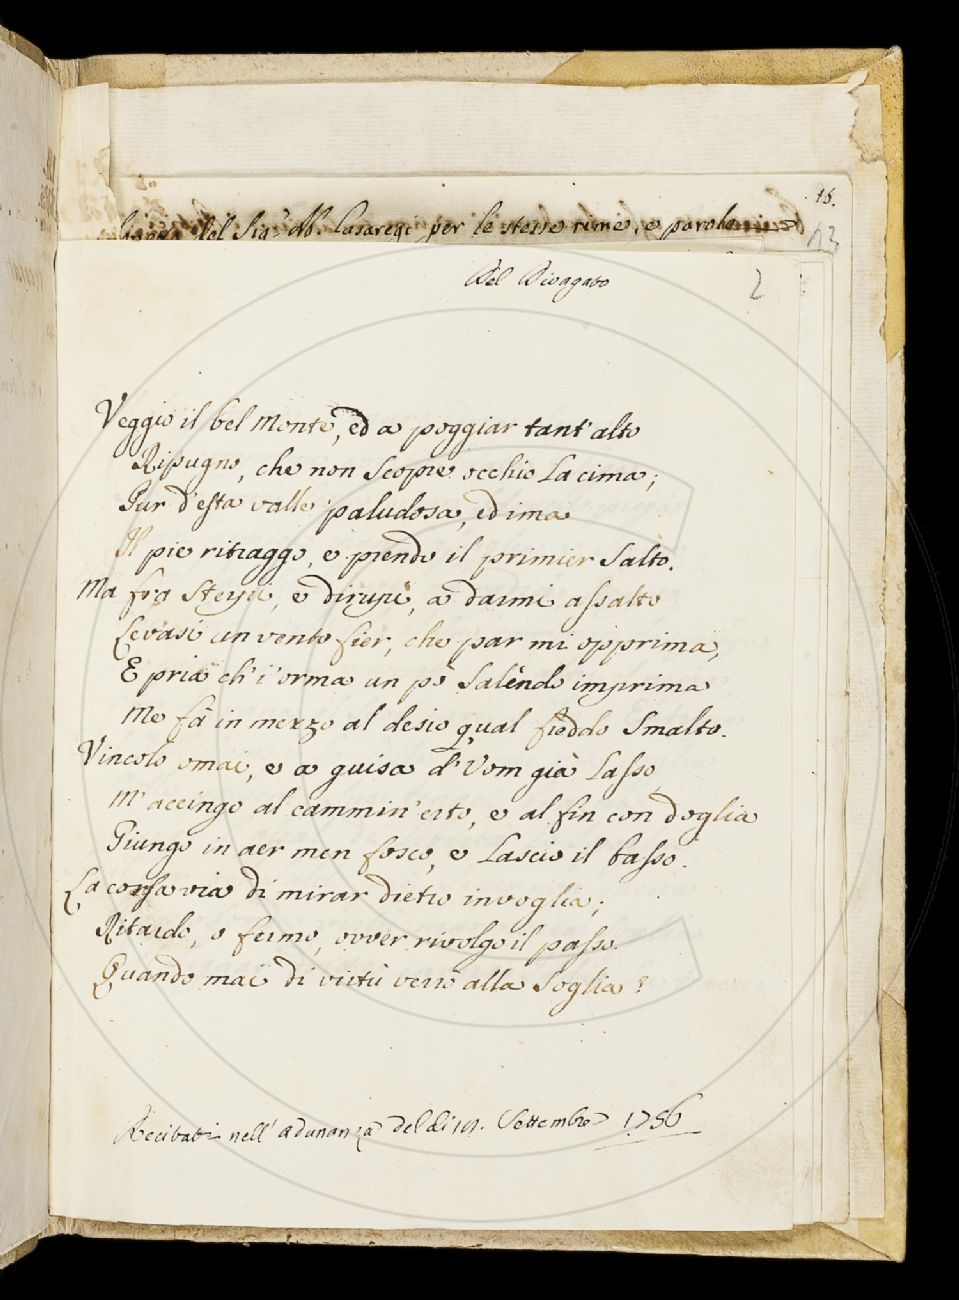 15.
del Sig.r Ab. Casaregi per le stesse rime, e parole
13
Del Divagato
2
Veggio il bel Monte, ed a poggiar tant'alto
Ripugno, che non scopre occhio la cima;
Pur d'esta valle paludosa, ed ima
Il pie ritraggo, e prendo il primier salto.
Ma fra sterpi, e dirupi, a darmi assalto
Levasi un vento fier, che par mi opprima,
E pria ch'i' orma un pò salendo imprima
Me fà in mezzo al desio qual freddo smalto.
Vincolo omai, e a guisa d'Uom già lasso
M'accingo al cammin'erto, e al fin con doglia
Giungo in aer men fosco, e lascio il basso.
La corsa via di mirar dietro invoglia;
Ritardo, o fermo, ovver rivolgo il passo.
Quando mai di virtù verrò alla soglia?
Recitati nell'adunanza del dì Settembre 1756